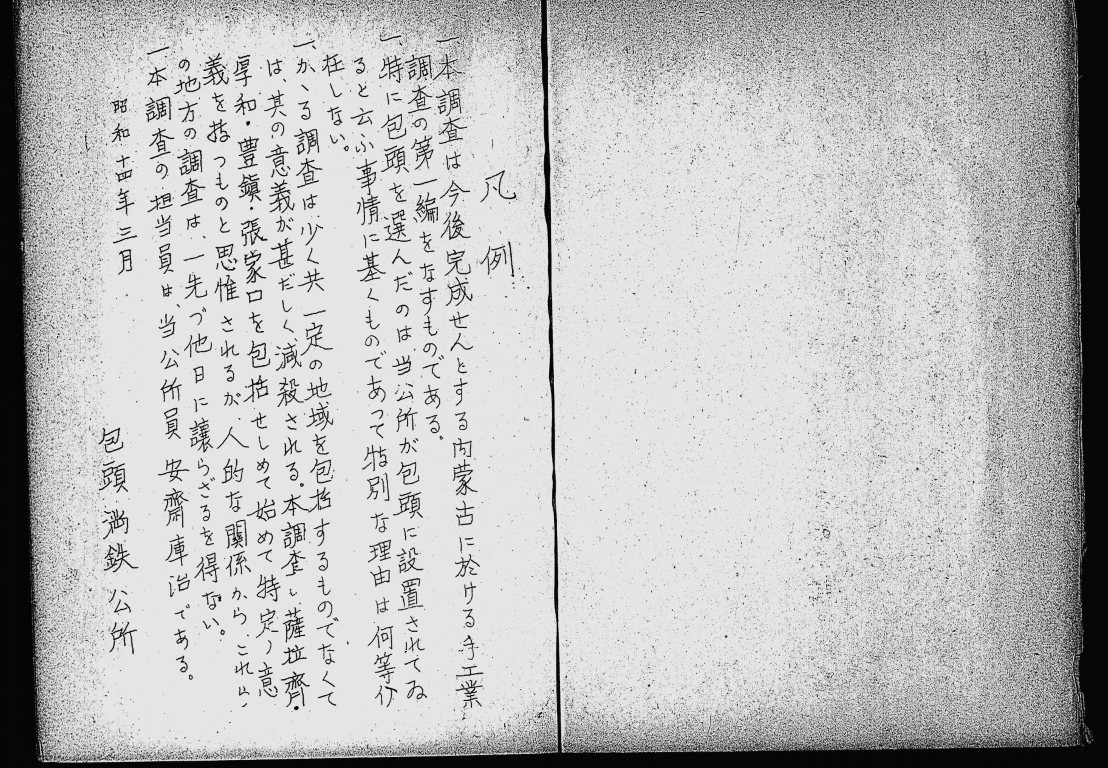 凡例
一、本調査は今後完成せんとする内蒙古に於ける手工業
調査の第一編をなすものである。
一、特に包頭を選んだのは当公所が包頭に設置されてゐ
ると云ふ事情に基くものであつて特別な理由は何等介
在しない。
一、かゝる調査は少く共一定の地域を包括するものでなくて
は、其の意義が甚だしく減殺される。本調査し薩拉齊・
厚和・豊鎮・張家口を包括せしめて始めて特定ノ意
義を持つものと思惟されるが、人的な関係から、これら
の地方の調査は、一先づ他日に譲らざるを得ない。
一、本調査の担当員は、当公所員 安齋庫治である。
昭和十四年三月
包頭満鉄公所